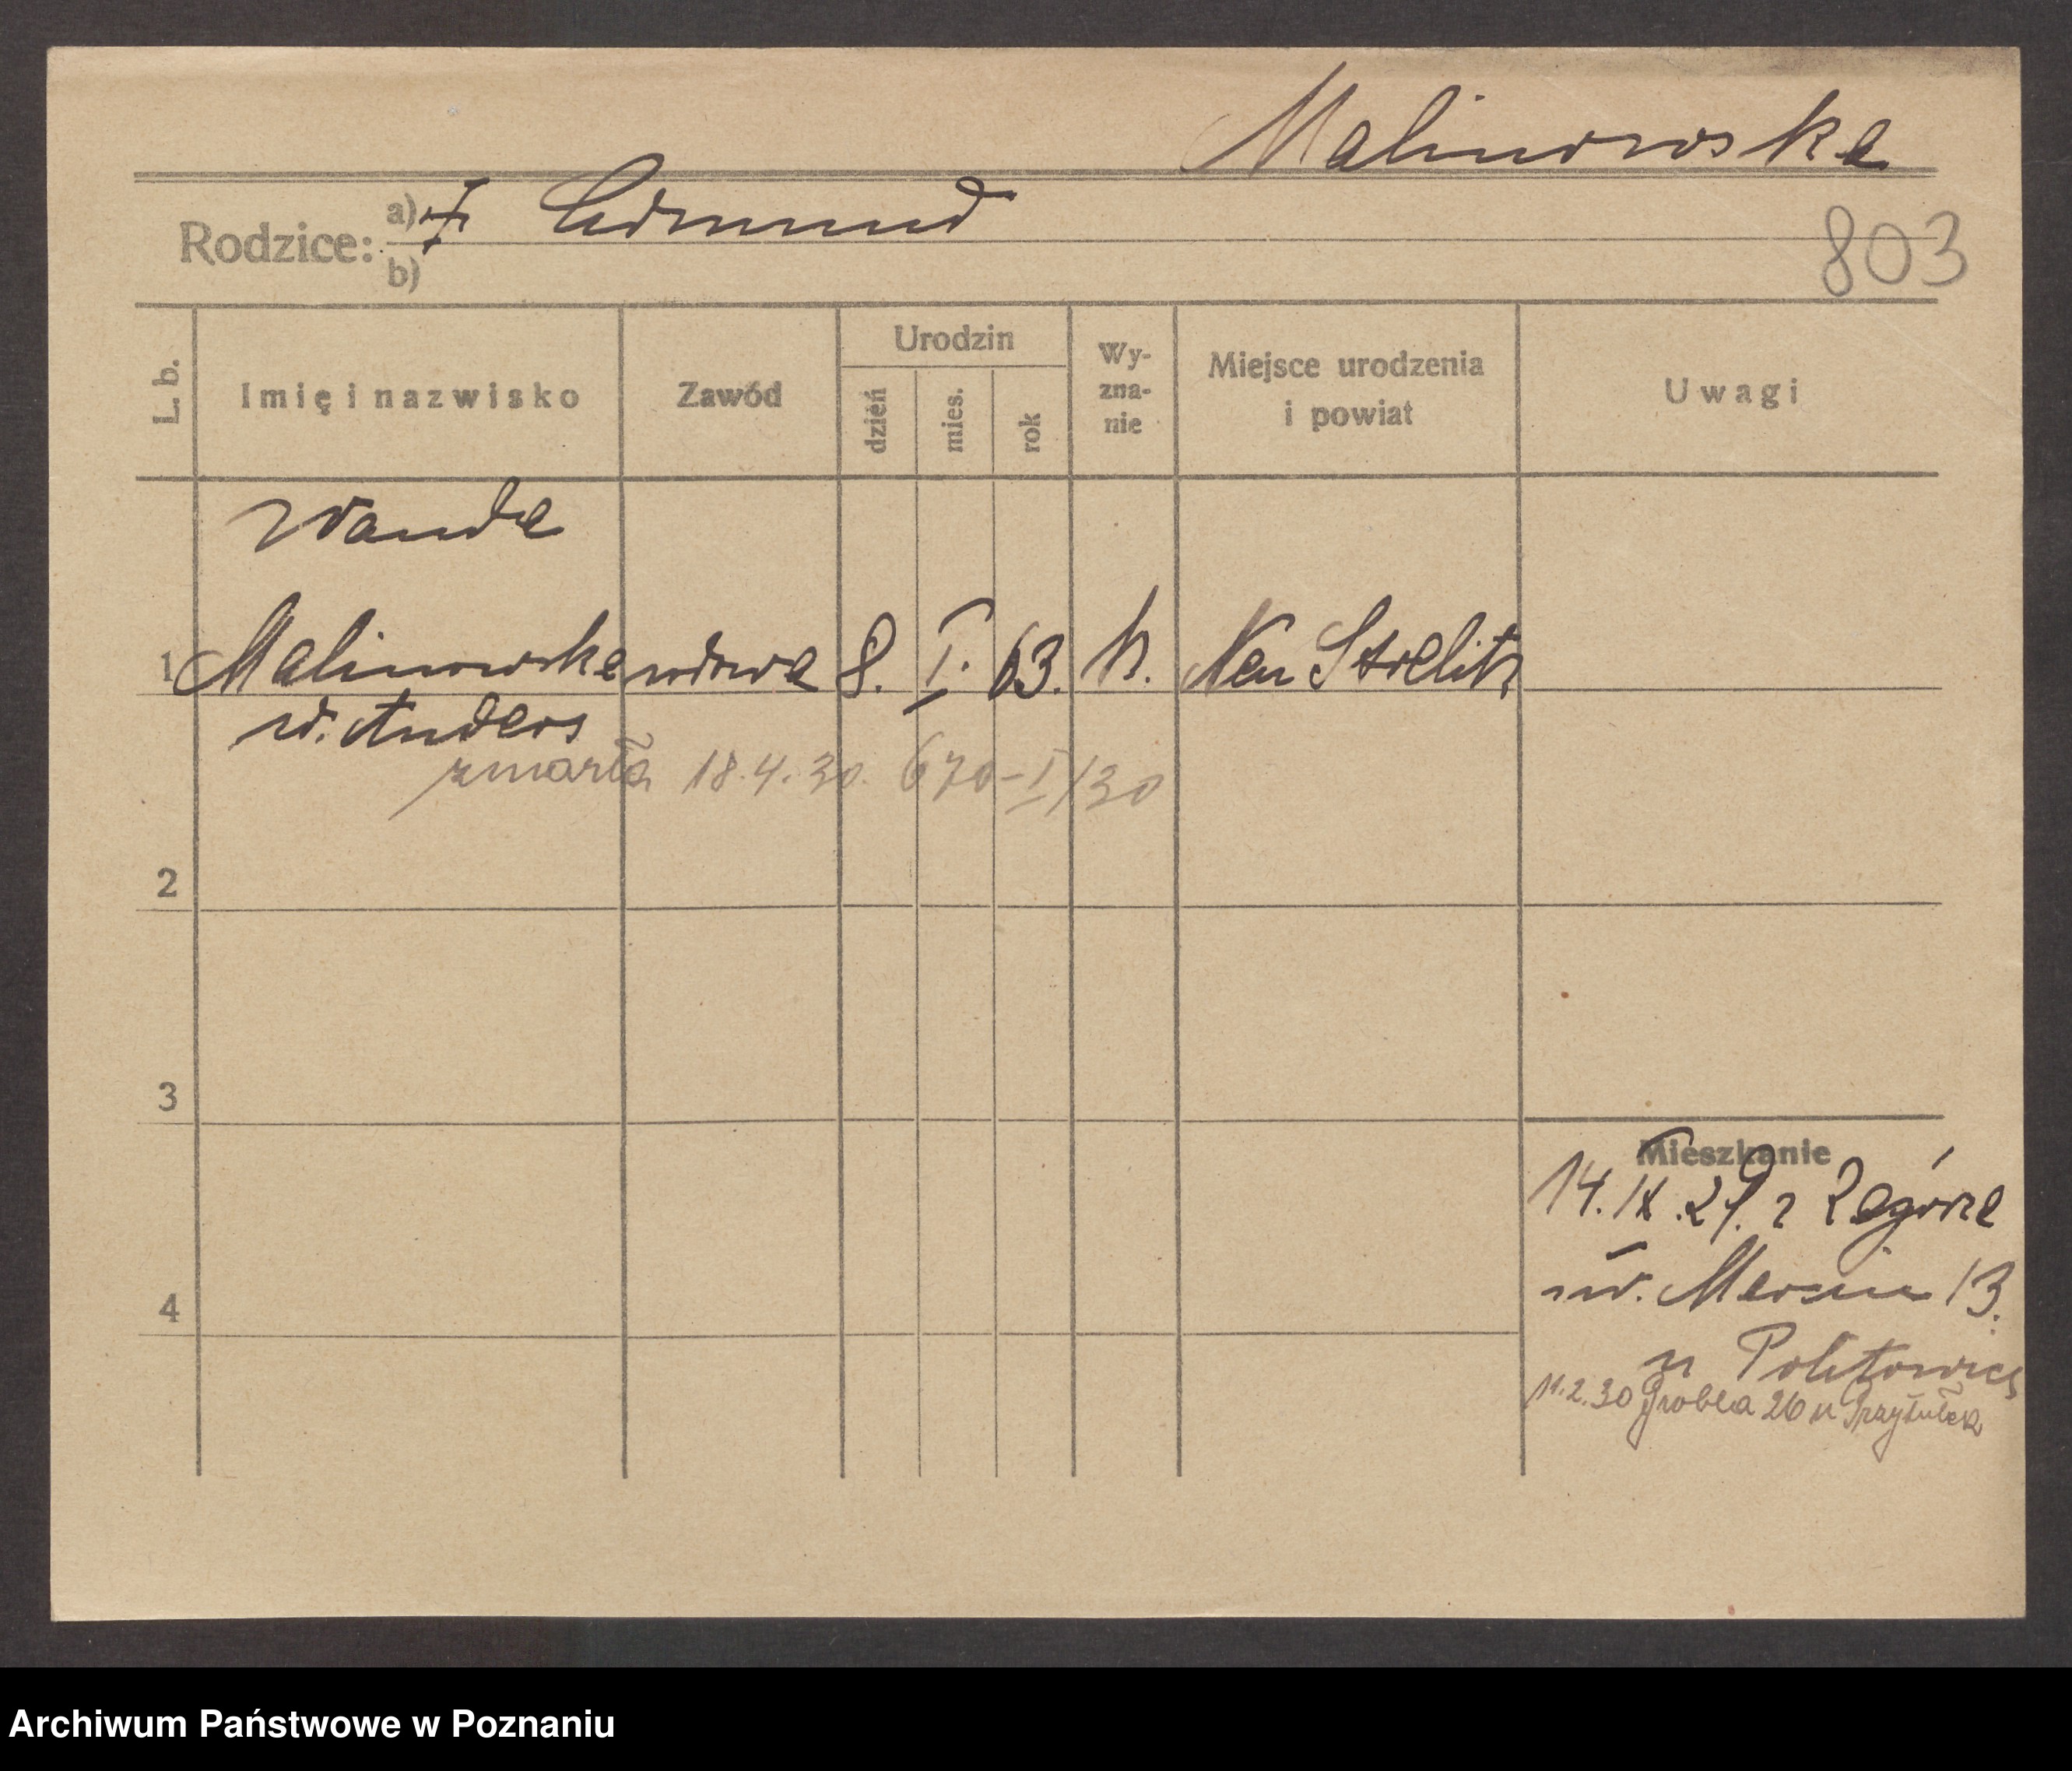 Malinowska
Rodzice: a) Edmund
b)
803
L. b.
Imię i nazwisko
Zawód
Urodzin
dzień
mies.
rok
Wy-
zna-
nie
Miejsce urodzenia
i powiat
Uwagi
Wanda
1 Malinowska wdowa 8. I. 63. k. Neu Strelitz
w. Anders
zmarła 18.4.30. 670-I/30
2
3
4
Mieszkanie
14.IX.29. z Zagórze
św. Marcin 13.
u Politowicz
11.2.30 Grobla 26 u Przytułek
Archiwum Państwowe w Poznaniu